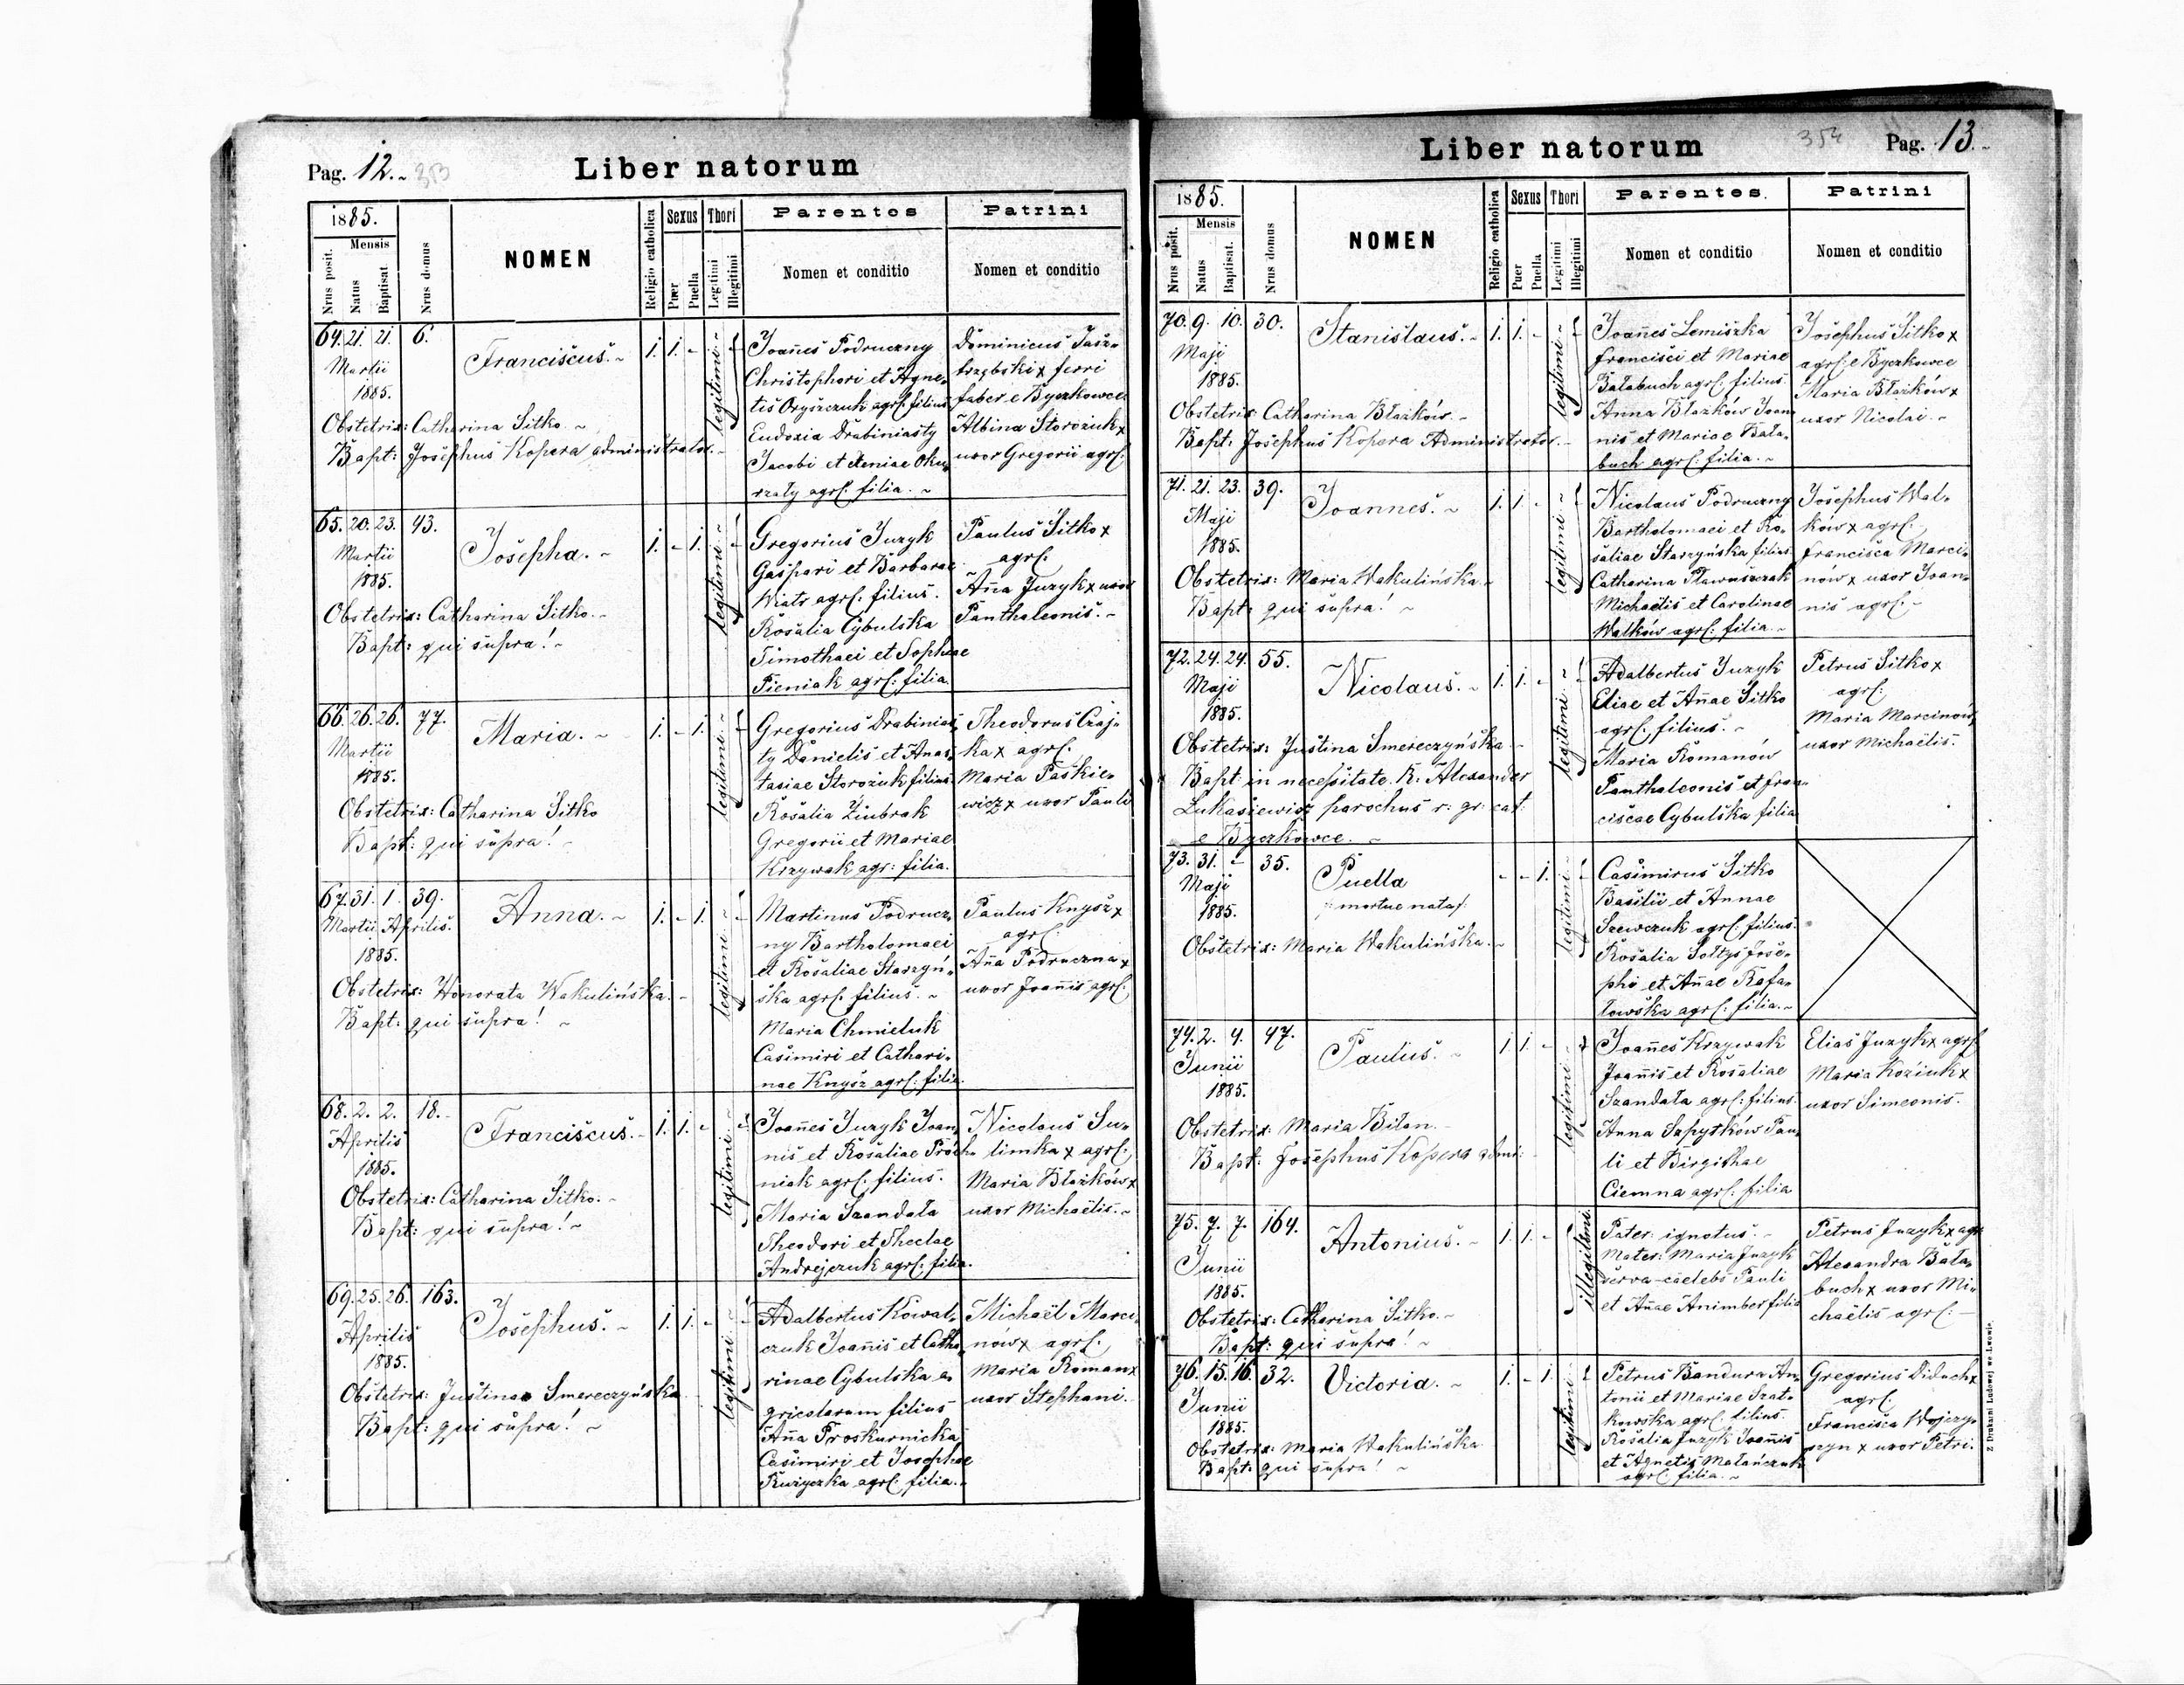 Pag. 12. 353
Liber natorum
1885.
Nrus posit.
Mensis
Natus
Baptisat.
Nrus domus
NOMEN
Religio catholica
Sexus
Puer
Puella
Thori
Legitimi
Illegitimi
Parentes
Nomen et conditio
Patrini
Nomen et conditio
64. 21. 21. 6.
Martii
1885.
Franciscus.
1. 1. -
legitimi
Obstetrix: Catharina Sitko.
Bapt: Josephus Kopera administrator.
Joannes Podruczny
Christophori et Agne-
tis Oryszczuk agrl. filius
Eudoxia Drabiniasty
Jacobi et Xeniae Oku-
rzaty agrl. filia.
Dominicus Jasz-
trzębski x ferri
faber e Byczkowce
Albina Storozuk x
uxor Gregorii agrl.
65. 20. 23. 43.
Martii
1885.
Josepha.
1. - 1.
legitimi
Obstetrix: Catharina Sitko.
Bapt: qui supra!
Gregorius Juzyk
Gaspari et Barbarae
Wiatr agrl. filius.
Rosalia Cybulska
Timothaei et Sophiae
Pieniak agrl. filia
Paulus Sitko x
agrl.
Anna Juzyk x uxor
Panthaleonis.
66. 26. 26. 77.
Martii
1885.
Maria.
1. - 1.
legitimi
Obstetrix: Catharina Sitko
Bapt: qui supra!
Gregorius Drabinias-
ty Danielis et Anas-
tasiae Storozuk filius
Rosalia Ziubrak
Gregorii et Mariae
Krzywak agr: filia.
Theodorus Czaj-
ka x agrl.
Maria Paskie-
wicz x uxor Pauli
67. 31. 1. 39.
Martii Aprilis.
1885.
Anna.
1. - 1.
legitimi
Obstetrix: Honorata Wakulińska.
Bapt: qui supra!
Martinus Podrucz-
ny Bartholomaei
et Rosaliae Starzyń-
ska agrl. filius.
Maria Chmieluk
Casimiri et Cathari-
nae Knysz agrl. filia
Paulus Knysz x
agrl.
Anna Podruczna x
uxor Joannis agrl.
68. 2. 2. 18.
Aprilis
1885.
Franciscus.
1. 1. -
legitimi
Obstetrix: Catharina Sitko.
Bapt: qui supra!
Joannes Juzyk Joan-
nis et Rosaliae Proch-
niak agrl. filius.
Maria Szandala
Theodori et Theclae
Andrejczuk agrl. filia.
Nicolaus Su-
limka x agrl.
Maria Błażków x
uxor Michaëlis.
69. 25. 26. 163.
Aprilis
1885.
Josephus.
1. 1. -
legitimi
Obstetrix: Justina Smereczyńska
Bapt: qui supra!
Adalbertus Kowal-
czuk Joannis et Catha-
rinae Cybulska a-
gricolarum filius
Anna Proskurnicka
Casimiri et Josephae
Ruzyczka agrl. filia.
Michaël Marci-
nów x agrl.
Maria Roman x
uxor Stephani.
Liber natorum
354
Pag. 13.
1885.
Nrus posit.
Mensis
Natus
Baptisat.
Nrus domus
NOMEN
Religio catholica
Sexus
Puer
Puella
Thori
Legitimi
Illegitimi
Parentes.
Nomen et conditio
Patrini
Nomen et conditio
70. 9. 10. 30.
Maji
1885.
Stanislaus.
1. 1. -
legitimi
Obstetrix: Catharina Błażków.
Bapt: Josephus Kopera Administrator.
Joannes Lemiszka
Francisci et Mariae
Bałabuch agrl. filius
Anna Błażków Joan-
nis et Mariae Bała-
buch agrl. filia.
Josephus Sitko x
agrl: e Byczkowce
Maria Błażków x
uxor Nicolai.
71. 21. 23. 39.
Maji
1885.
Joannes.
1. 1. -
legitimi
Obstetrix: Maria Wakulińska.
Bapt: qui supra!
Nicolaus Podruczny
Bartholomaei et Ro-
saliae Starzyńska filius
Catharina Pławuszczak
Michaëlis et Carolinae
Walków agrl: filia.
Josephus Wal-
ków x agrl.
Francisca Marci-
nów x uxor Joan-
nis agrl.
72. 24. 24. 55.
Maji
1885.
Nicolaus.
1. 1. -
legitimi
Obstetrix: Justina Smereczyńska.
Bapt in necessitate. R. Alexander
Lukasiewicz parochus r: gr: cat:
e Byczkowce.
Adalbertus Juzyk
Eliae et Annae Sitko
agrl. filius.
Maria Romanów
Panthaleonis et Fran-
ciscae Cybulska filia
Petrus Sitko x
agrl:
Maria Marcinów
uxor Michaëlis.
73. 31. - 35.
Maji
1885.
Puella
mortue nata
- - 1.
legitimi
Obstetrix: Maria Wakulińska.
Casimirus Sitko
Basilii et Annae
Szewczuk agrl. filius.
Rosalia Sołtys Jose-
phi et Annae Rafa-
łowska agrl. filia.
74. 2. 4. 47.
Junii
1885.
Paulus.
1. 1. -
legitimi
Obstetrix: Maria Bilan.
Bapt: Josephus Kopera admi:
Joannes Krzywak
Joannis et Rosaliae
Szandała agrl. filius.
Anna Sapytków Pau-
li et Birgithae
Ciemna agrl. filia
Elias Juzyk x agrl.
Maria Koziuk x
uxor Simeonis.
75. 7. 7. 164.
Junii
1885.
Antonius.
1. 1. -
illegitimi
Obstetrix: Catharina Sitko.
Bapt: qui supra!
Pater: ignotus.
Mater: Maria Juzyk
serva-caelebs Pauli
et Annae Animber filia
Petrus Juzyk x agr
Alexandra Bała-
buch x uxor Mi-
chaëlis agrl:
76. 15. 16. 32.
Junii
1885.
Victoria.
1. - 1.
legitimi
Obstetrix: Maria Wakulińska
Bapt: qui supra!
Petrus Bandura An-
tonii et Mariae Szat-
kowska agrl. filius.
Rosalia Juzyk Joannis
et Agnetis Malańczuk
agrl. filia.
Gregorius Diduch x
agrl.
Francisca Wojczy-
szyn x uxor Petri.
Z Drukarni Ludowej we Lwowie.